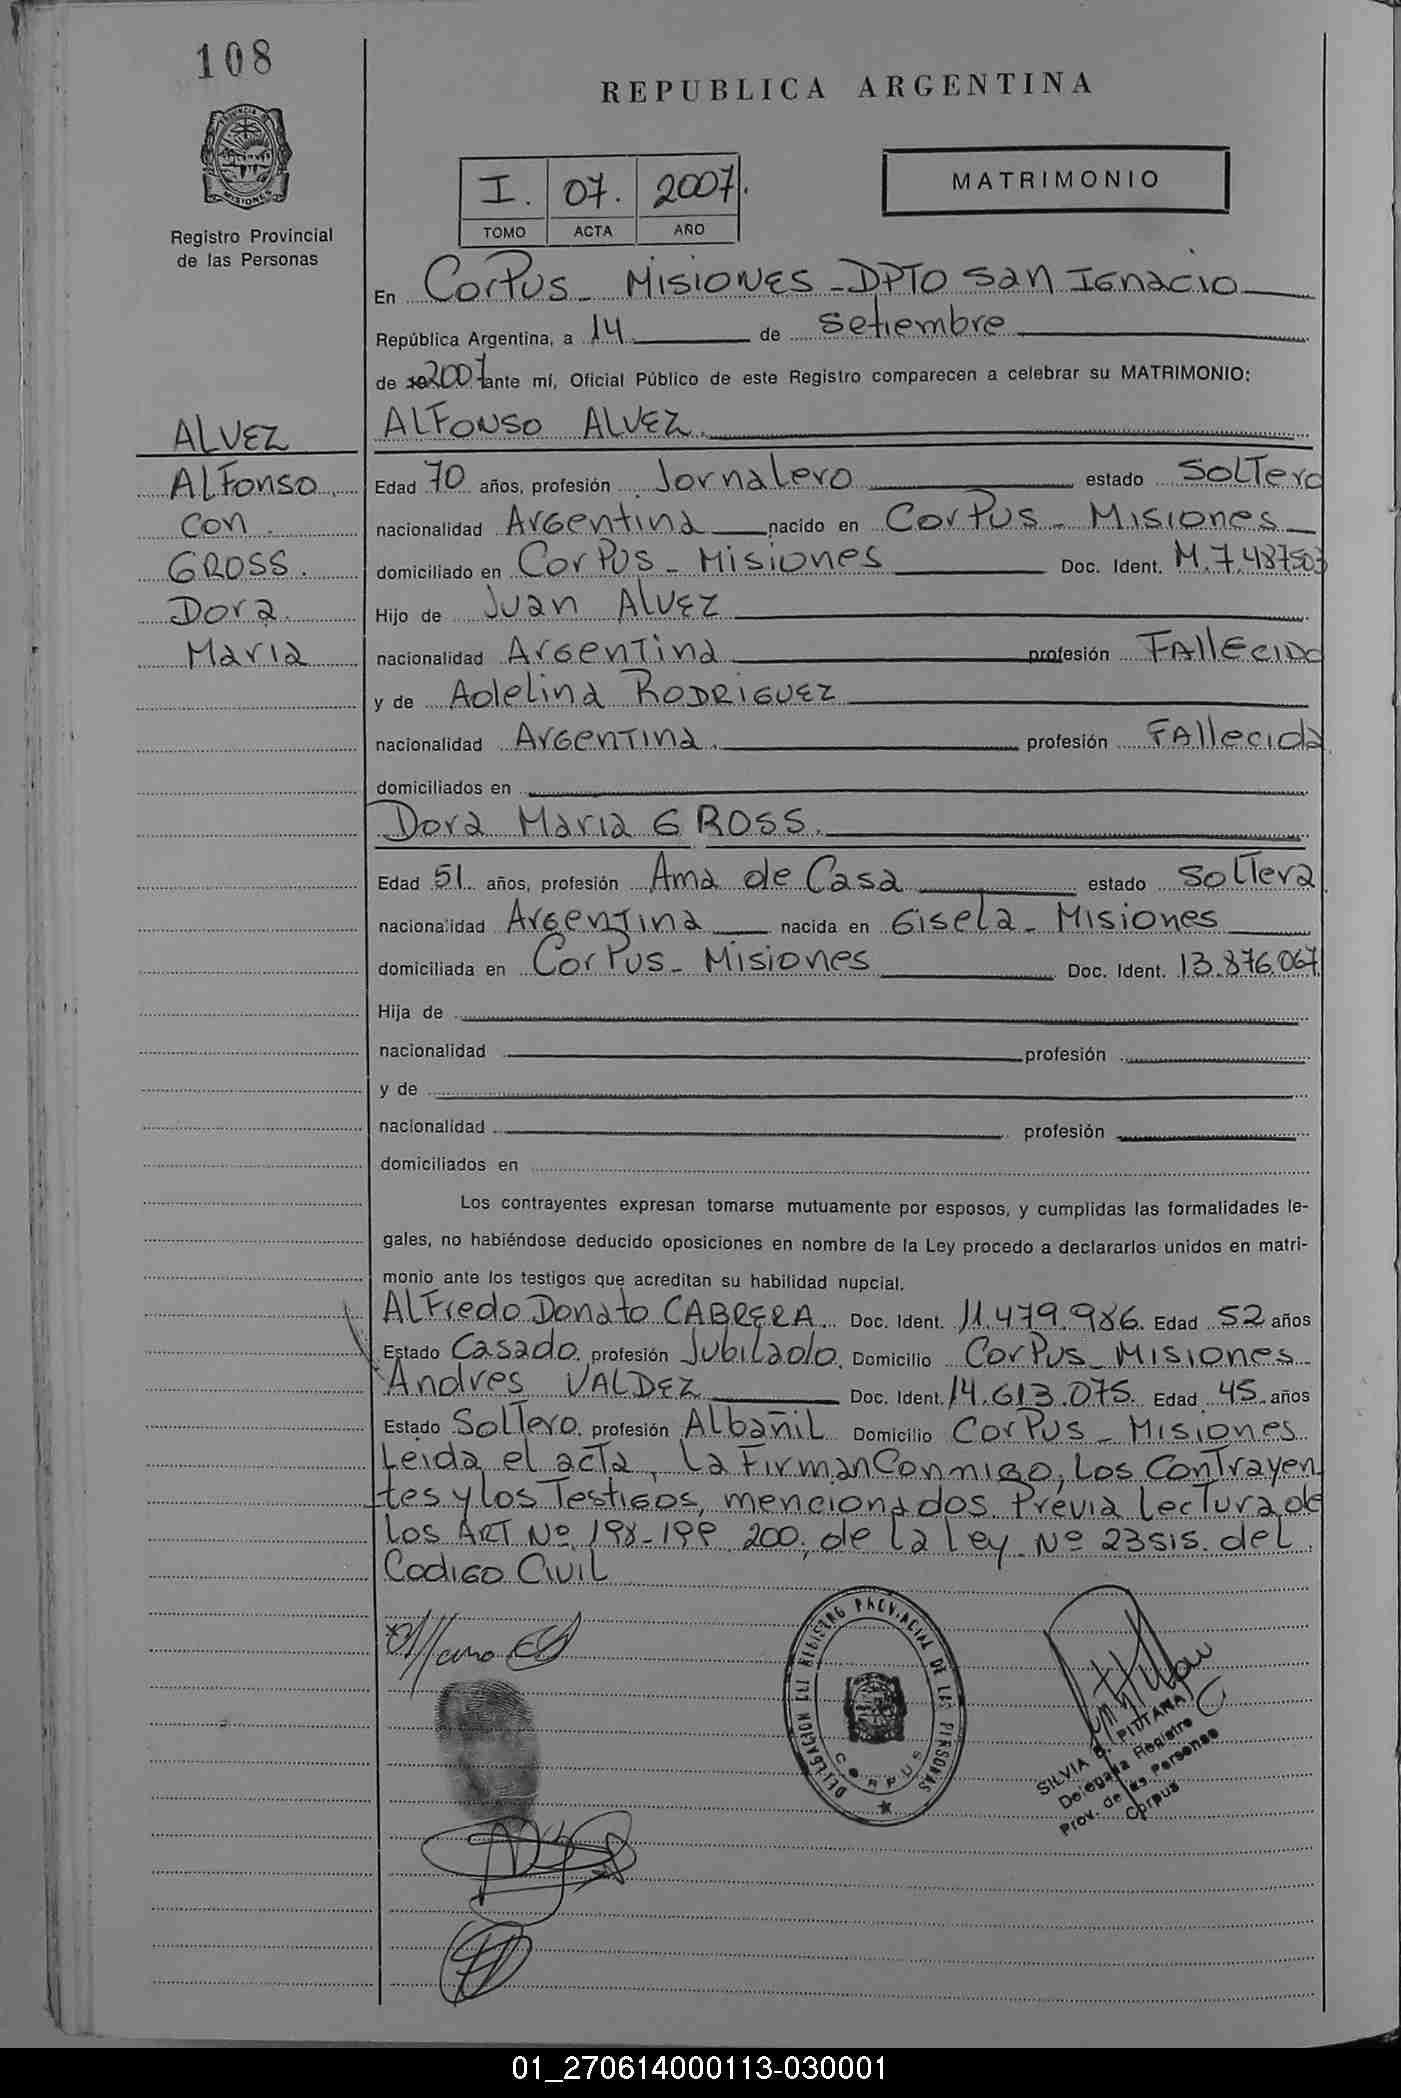 108
REPUBLICA ARGENTINA
MISIONES
Registro Provincial
de las Personas
I. 07. 2007.
TOMO ACTA AÑO
MATRIMONIO
En Corpus - Misiones - DPTO San Ignacio
República Argentina, a 14 de Setiembre
de 192007 ante mí, Oficial Público de este Registro comparecen a celebrar su MATRIMONIO:
ALVEZ
Alfonso
con.
GROSS.
Dora.
Maria
ALFONSO ALVEZ.
Edad 70 años, profesión Jornalero estado Soltero
nacionalidad Argentina nacido en Corpus - Misiones
domiciliado en Corpus - Misiones Doc. Ident. M.7.487503
Hijo de Juan Alvez
nacionalidad Argentina profesión Fallecido
y de Adelina RODRIGUEZ
nacionalidad Argentina. profesión Fallecida
domiciliados en
Dora Maria GROSS.
Edad 51 años, profesión Ama de Casa estado Soltera
nacionalidad Argentina nacida en Gisela - Misiones
domiciliada en Corpus - Misiones Doc. Ident. 13.876.067
Hija de
nacionalidad profesión
y de
nacionalidad profesión
domiciliados en
Los contrayentes expresan tomarse mutuamente por esposos, y cumplidas las formalidades le-
gales, no habiéndose deducido oposiciones en nombre de la Ley procedo a declararlos unidos en matri-
monio ante los testigos que acreditan su habilidad nupcial.
Alfredo Donato CABRERA. Doc. Ident. 11.479.986. Edad 52 años
Estado Casado. profesión Jubilado. Domicilio Corpus - Misiones
Andres VALDEZ Doc. Ident. 14.613.075. Edad 45. años
Estado Soltero. profesión Albañil Domicilio Corpus - Misiones
Leida el acta, la Firman Conmigo, los Contrayen
tes y los Testigos, mencionados. Previa lectura de
los ART. Nº 198-199 200, de la ley Nº 23515. del
Codigo Civil
DELEGACION DEL REGISTRO PROVINCIAL DE LAS PERSONAS
CORPUS
SILVIA B. PITTANA
Delegada Registro
Prov. de las Personas
Corpus
01_270614000113-030001